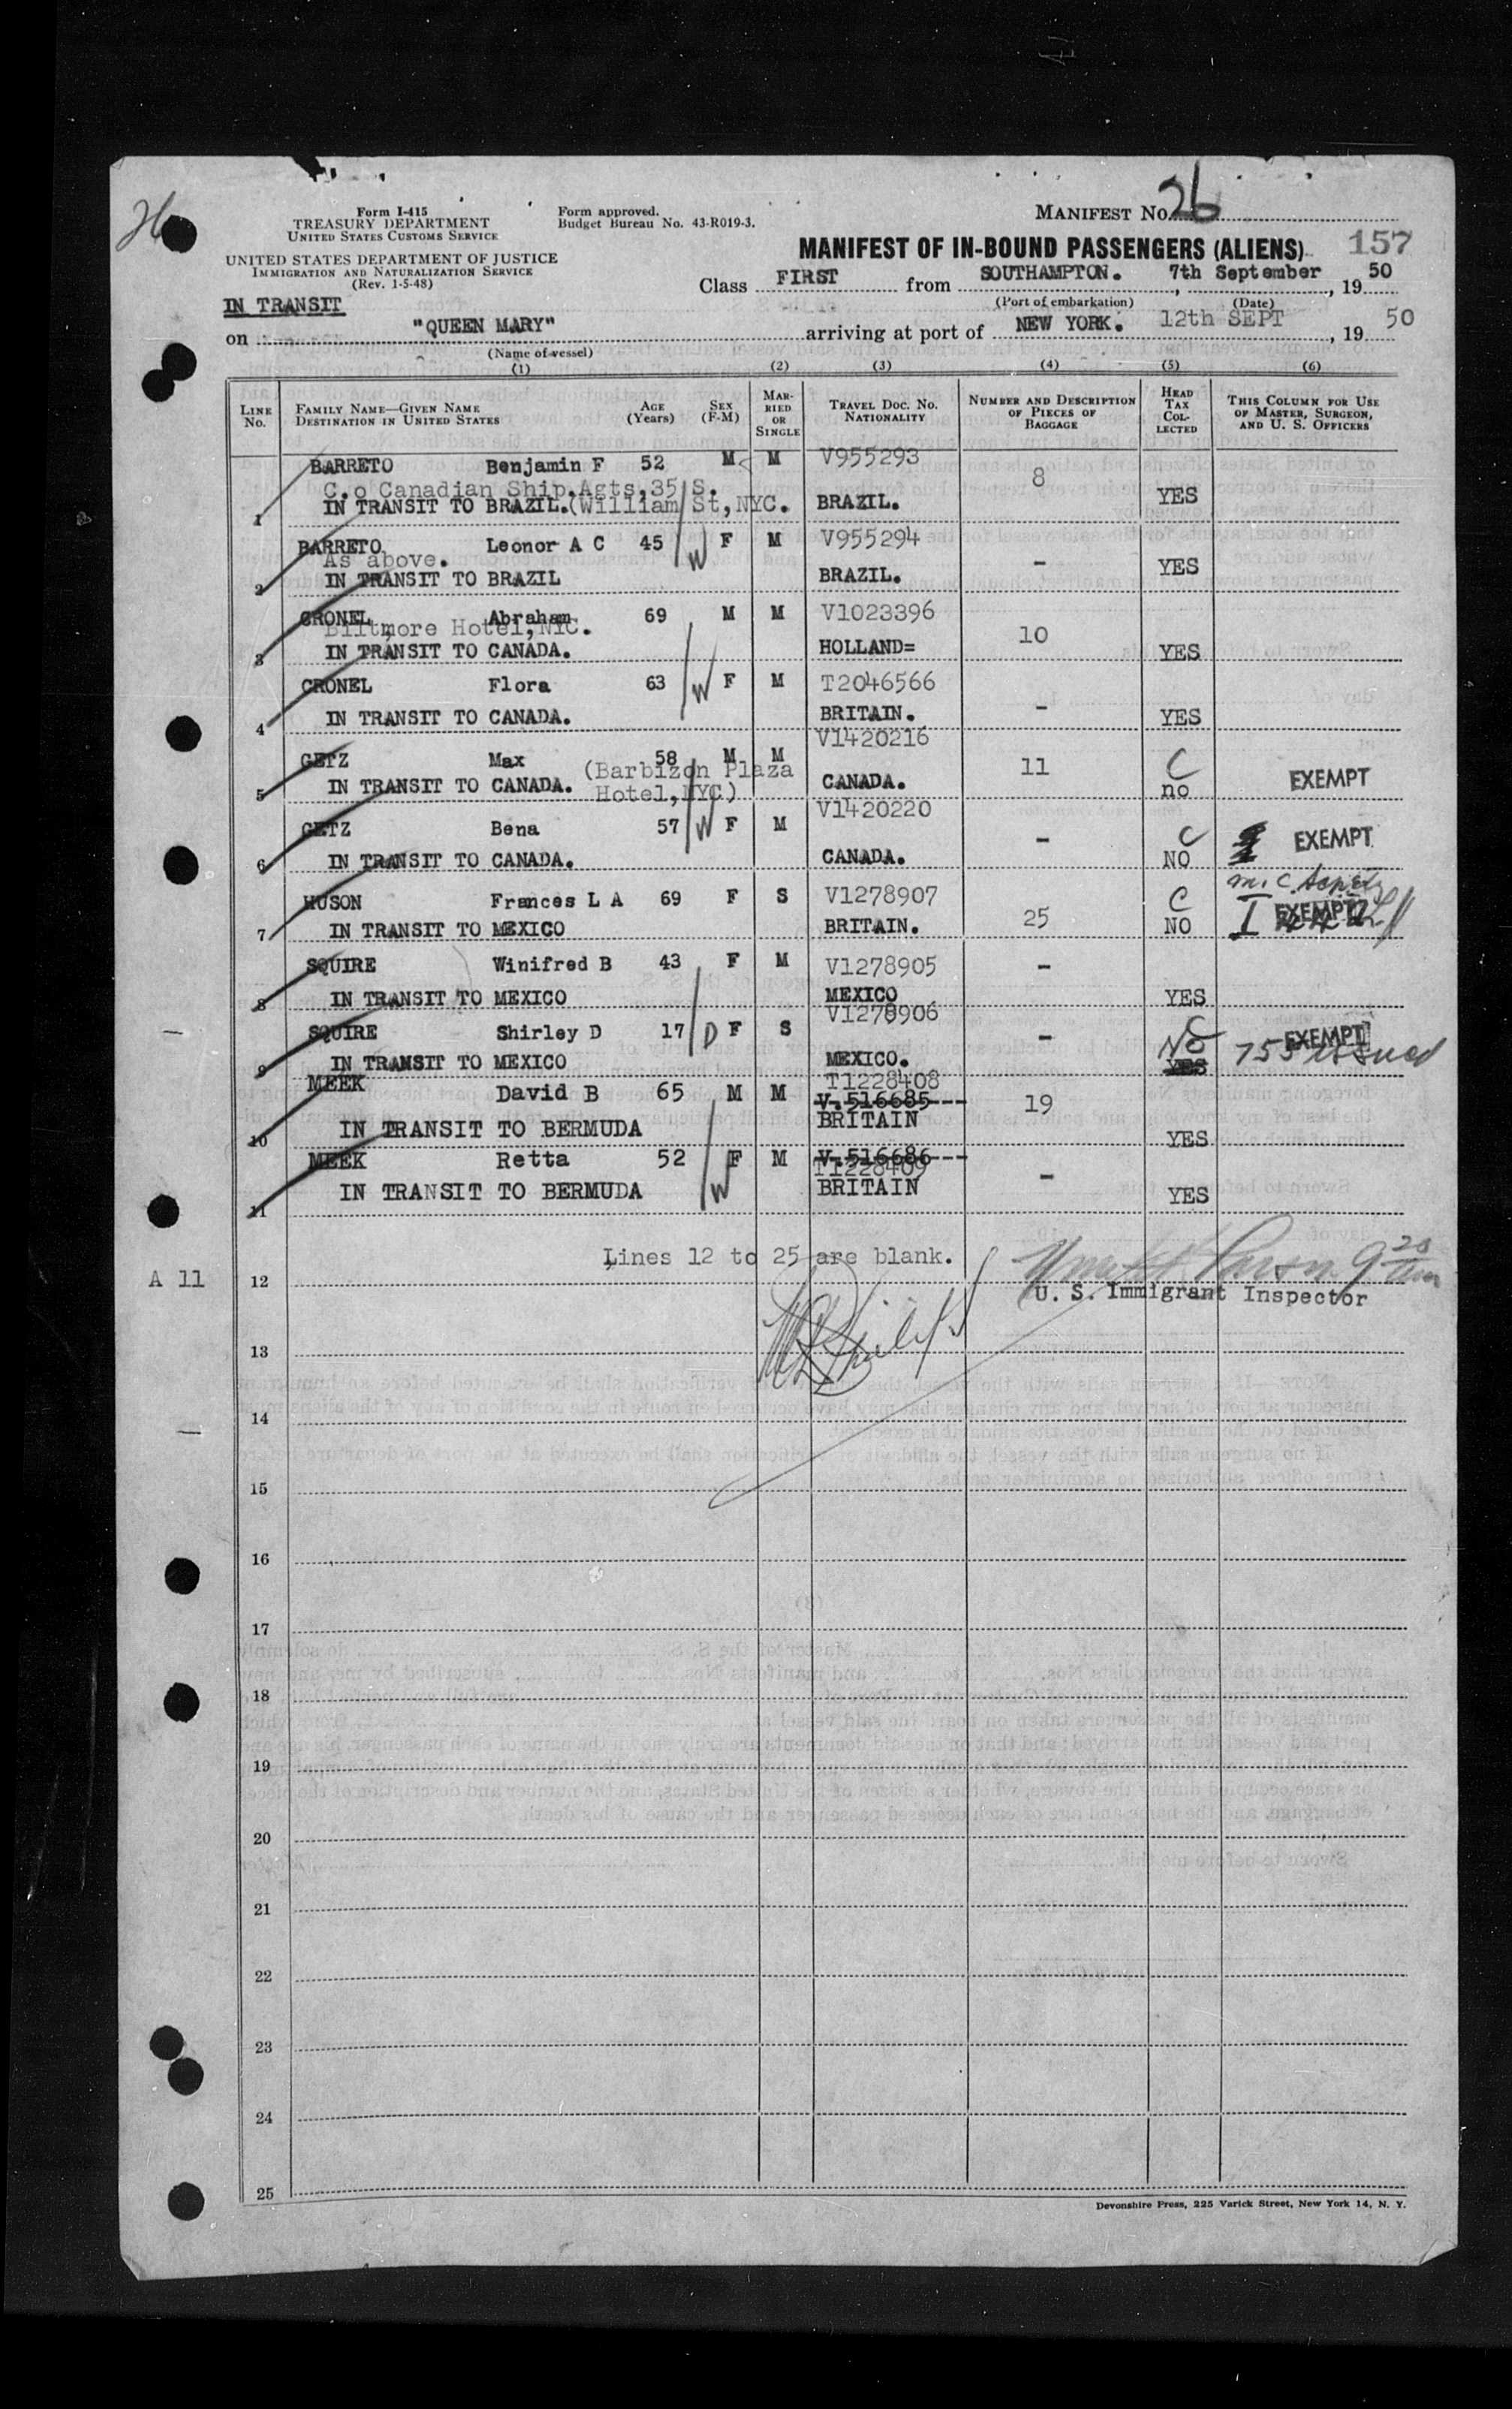 26
Form I-415
TREASURY DEPARTMENT
UNITED STATES CUSTOMS SERVICE
UNITED STATES DEPARTMENT OF JUSTICE
IMMIGRATION AND NATURALIZATION SERVICE
(Rev. 1-5-48)
Form approved.
Budget Bureau No. 43-R019-3.
MANIFEST No. 26
MANIFEST OF IN-BOUND PASSENGERS (ALIENS) 157
Class FIRST from SOUTHAMPTON. , 7th September , 19 50
(Port of embarkation) (Date)
IN TRANSIT
on "QUEEN MARY" arriving at port of NEW YORK. 12th SEPT , 19 50
(Name of vessel)
(1) (2) (3) (4) (5) (6)
LINE No. FAMILY NAME—GIVEN NAME DESTINATION IN UNITED STATES AGE (Years) SEX (F-M) MARRIED OR SINGLE TRAVEL DOC. No. NATIONALITY NUMBER AND DESCRIPTION OF PIECES OF BAGGAGE HEAD TAX COLLECTED THIS COLUMN FOR USE OF MASTER, SURGEON, AND U. S. OFFICERS
BARRETO Benjamin F 52 M M V955293 8
C.o Canadian Ship.Agts,35 S.
1 IN TRANSIT TO BRAZIL.(William St,NYC. BRAZIL. YES
BARRETO Leonor A C 45 W F M V955294 -
As above.
2 IN TRANSIT TO BRAZIL BRAZIL. YES
CRONEL Abraham 69 M M V1023396 10
Biltmore Hotel,NYC.
3 IN TRANSIT TO CANADA. HOLLAND= YES
CRONEL Flora 63 W F M T2046566 -
4 IN TRANSIT TO CANADA. BRITAIN. YES
GETZ Max 58 M M V1420216 11 C EXEMPT
5 IN TRANSIT TO CANADA. (Barbizon Plaza Hotel,NYC) CANADA. no
GETZ Bena 57 W F M V1420220 - C EXEMPT
6 IN TRANSIT TO CANADA. CANADA. NO
HUSON Frances L A 69 F S V1278907 25 C I EXEMPT
7 IN TRANSIT TO MEXICO BRITAIN. NO
SQUIRE Winifred B 43 F M V1278905 -
8 IN TRANSIT TO MEXICO MEXICO YES
SQUIRE Shirley D 17 D F S V1278906 - C NO EXEMPT
9 IN TRANSIT TO MEXICO MEXICO. YES 755 issued
MEEK David B 65 M M T1228408 19
V.516685---
10 IN TRANSIT TO BERMUDA BRITAIN YES
MEEK Retta 52 W F M V.516686--- -
T1228409
11 IN TRANSIT TO BERMUDA BRITAIN YES
Lines 12 to 25 are blank.
A 11
12
U. S. Immigrant Inspector
13
14
15
16
17
18
19
20
21
22
23
24
25
Devonshire Press, 225 Varick Street, New York 14, N. Y.